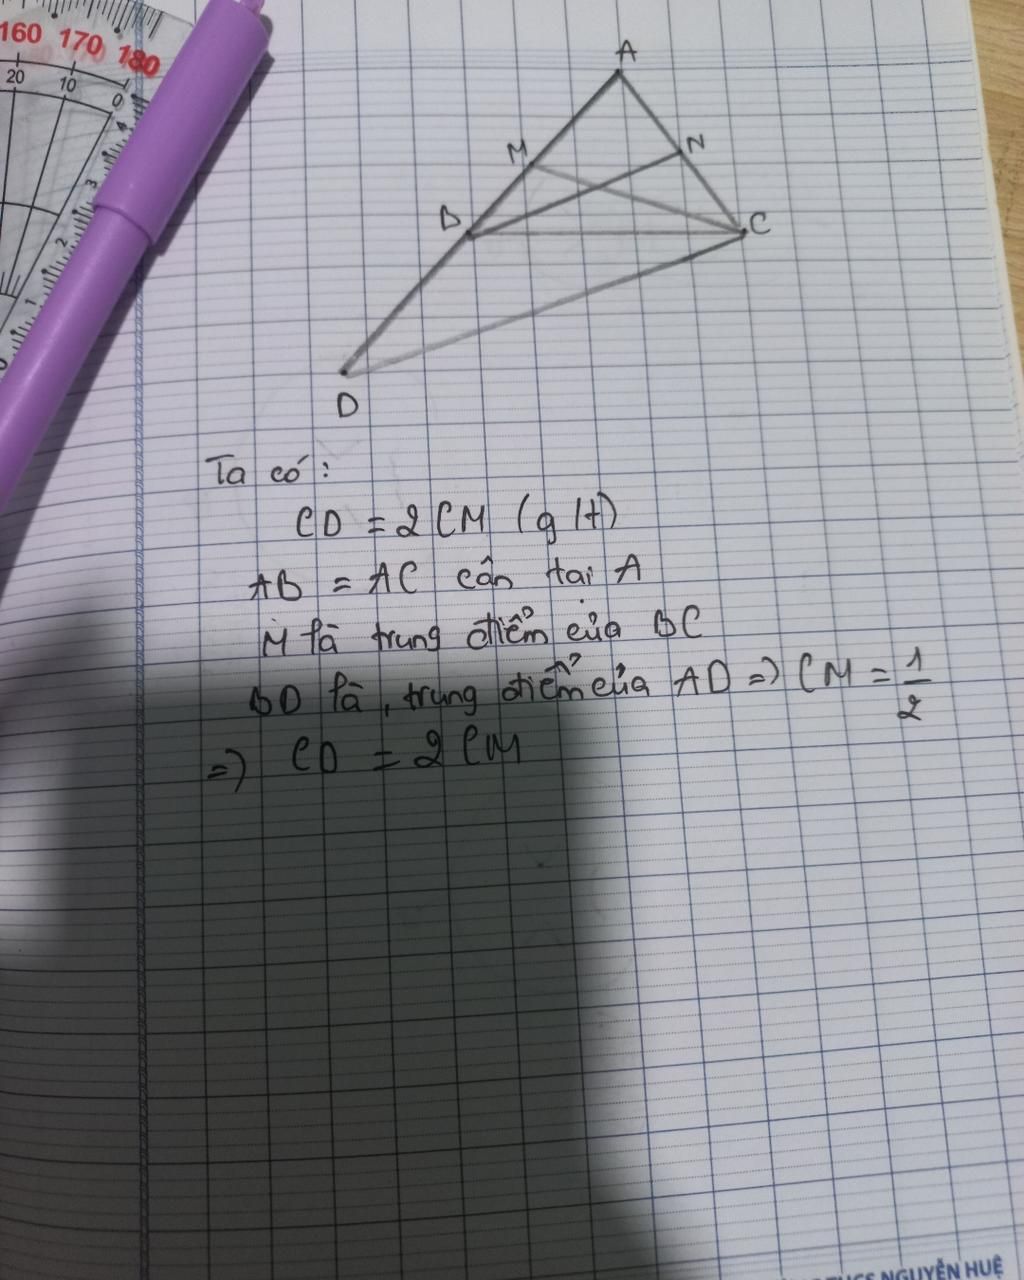 160 170 180
20 10 0
4
3
2
1
0
A
M
N
B
C
D
Ta có:
CD = 2 CM (g/t)
AB = AC cân tại A
M là trung điểm của BC
BD là, trung điểm của AD => CM = 1/2
=> CD = 2 CM
THCS NGUYỄN HUỆ